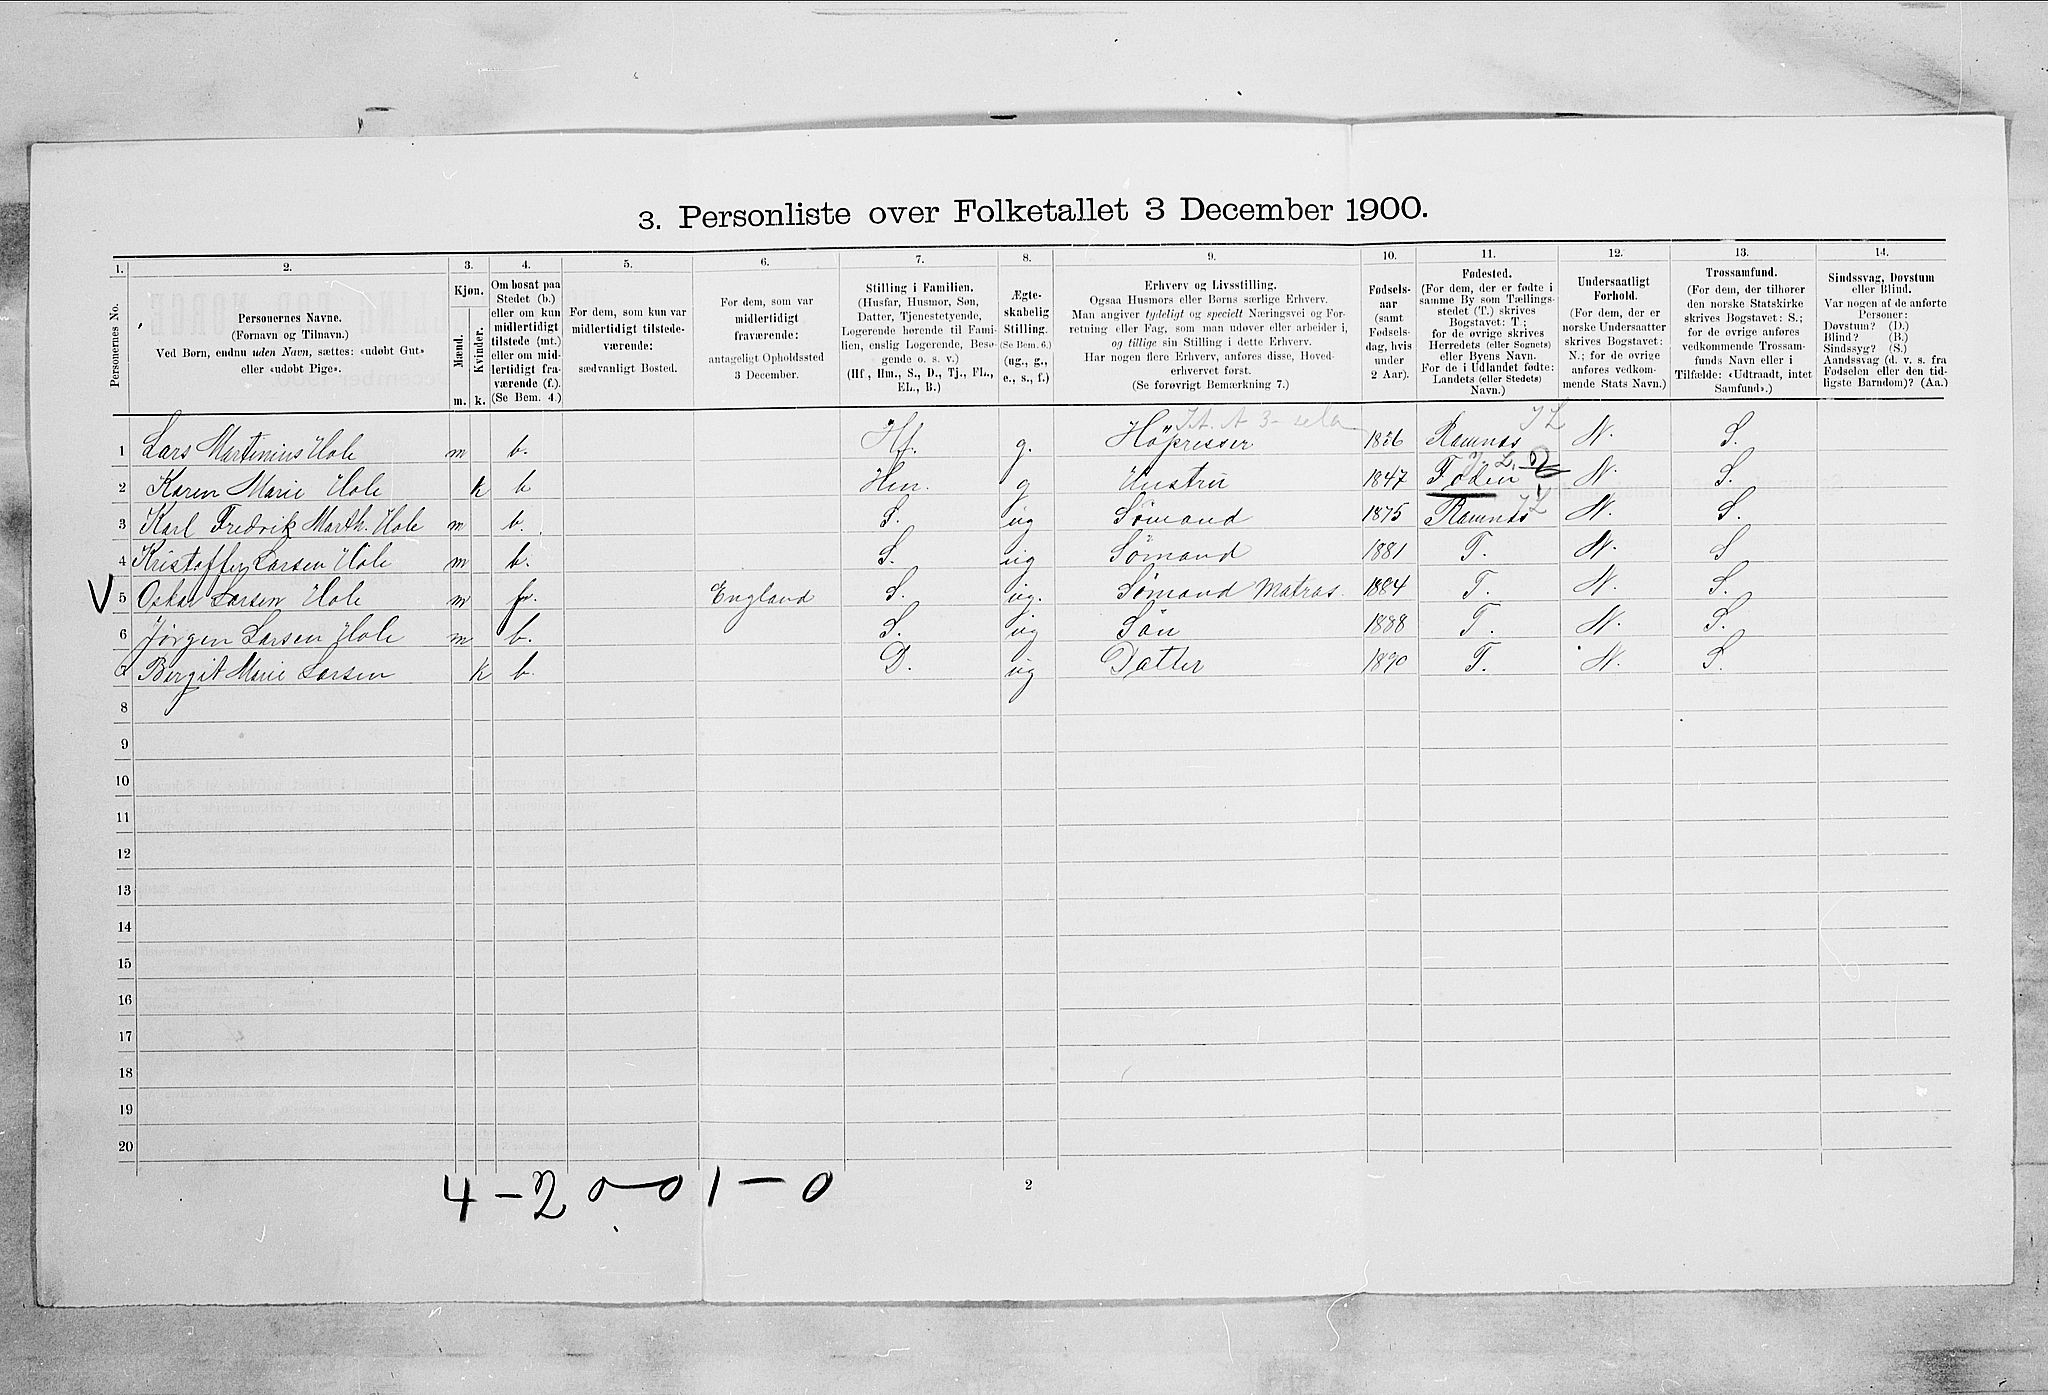 3. Personliste over Folketallet 3 December 1900.
1. 2. 3. 4. 5. 6. 7. 8. 9. 10. 11. 12. 13. 14.
Personernes No.
Personernes Navne.
(Fornavn og Tilnavn.)
Ved Børn, endnu uden Navn, sættes: «udøbt Gut»
eller «udøbt Pige».
Kjøn.
Mænd.
Kvinder.
m. k.
Om bosat paa
Stedet (b.)
eller om kun
midlertidigt
tilstede (mt.)
eller om mid-
lertidigt fra-
værende (f.).
(Se Bem. 4.)
For dem, som kun var
midlertidigt tilstede-
værende:
sædvanligt Bosted.
For dem, som var
midlertidigt
fraværende:
antageligt Opholdssted
3 December.
Stilling i Familien.
(Husfar, Husmor, Søn,
Datter, Tjenestetyende,
Logerende hørende til Fami-
lien, enslig Logerende, Besø-
gende o. s. v.)
(Hf., Hm., S., D., Tj., FL.,
EL., B.)
Ægte-
skabelig
Stilling.
(Se Bem. 6.)
(ug., g.,
e., s., f.)
Erhverv og Livsstilling.
Ogsaa Husmors eller Børns særlige Erhverv.
Man angiver tydeligt og specielt Næringsvei og For-
retning eller Fag, som man udøver eller arbeider i,
og tillige sin Stilling i dette Erhverv.
Har nogen flere Erhverv, anføres disse, Hoved-
erhvervet først.
(Se forøvrigt Bemærkning 7.)
Fødsels-
aar
(samt
Fødsels-
dag, hvis
under
2 Aar).
Fødested.
(For dem, der er fødte i
samme By som Tællings-
stedet (T.) skrives
Bogstavet: T.;
for de øvrige skrives
Herredets (eller Sognets)
eller Byens Navn.
For de i Udlandet fødte:
Landets (eller Stedets)
Navn.)
Undersaatligt
Forhold.
(For dem, der er
norske Undersaatter
skrives Bogstavet:
N.; for de øvrige
anføres vedkom-
mende Stats Navn.)
Trossamfund.
(For dem, der tilhører
den norske Statskirke
skrives Bogstavet: S.;
for de øvrige anføres
vedkommende Trossam-
funds Navn eller i
Tilfælde: «Udtraadt, intet
Samfund».)
Sindssvag, Døvstum
eller Blind.
Var nogen af de anførte
Personer:
Døvstum? (D.)
Blind? (B.)
Sindssyg? (S.)
Aandssvag (d. v. s. fra
Fødselen eller den tid-
ligste Barndom)? (Aa.)
1 Lars Martinius Hole m b. Hf. g. Höpresser 1856 Ramnes N. S.
2 Karen Marie Hole k b Hm. g Hustru 1847 N. S.
3 Karl Fredrik Marth. Hole m b. S. ug Sömand 1875 Ramnes N. S.
4 Kristoffer Larsen Hole m b. S. ug Sömand 1881 T. N. S
V 5 Oskar Larsen Hole m f. England S. ug. Sömand Matros. 1884 T. N. S.
6 Jörgen Larsen Hole m b. S. ug Sön 1888 T. N. S.
7 Bergit Marie Larsen k b. D. ug Datter 1890 T. N. S.
8
9
10
11
12
13
14
15
16
17
18
19
20
2